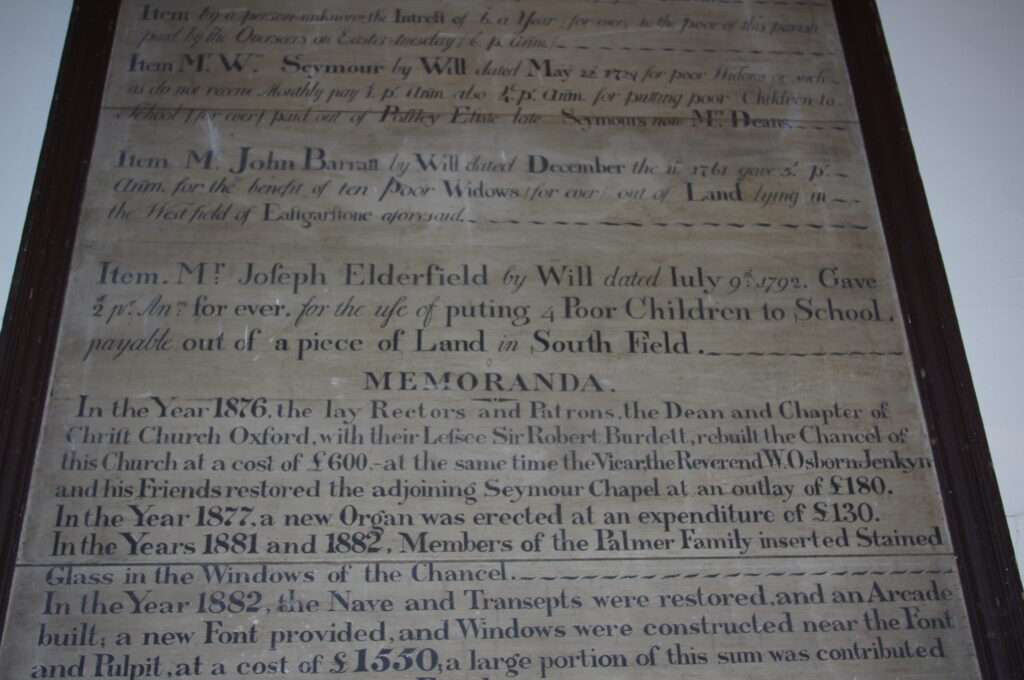 Item by a person unknown the Intrest of £6 a Year (for ever) to the poor of this parish
paid by the Overseers on Easter-tuesday, 6s. pr. Ann:
Item Mr. Wm. Seymour by Will dated May 22d 1721 for poor Widows or such
as do not receive Monthly pay pr. Ann. also pr. Ann. for putting poor Children to
School (for ever) paid out of late Seymours now Mrs. Deans.
Item Mr. John Barratt by Will dated December the 11th. 1761 gave pr.
Ann. for the benefit of ten Poor Widows (for ever) out of Land lying in
the West field of Eastgarstone aforesaid.
Item. Mr. Joseph Elderfield by Will dated July 9th. 1792. Gave
pr. Anm. for ever. for the use of puting 4 Poor Children to School,
payable out of a piece of Land in South Field.
MEMORANDA.
In the Year 1876, the lay Rectors and Patrons, the Dean and Chapter of
Christ Church Oxford, with their Lefsee Sir Robert Burdett, rebuilt the Chancel of
this Church at a cost of £600.-at the same time the Vicar, the Reverend W. Osborn Jenkyn
and his Friends restored the adjoining Seymour Chapel at an outlay of £180.
In the Year 1877, a new Organ was erected at an expenditure of £130.
In the Years 1881 and 1882, Members of the Palmer Family inserted Stained
Glass in the Windows of the Chancel.
In the Year 1882, the Nave and Transepts were restored, and an Arcade
built; a new Font provided, and Windows were constructed near the Font
and Pulpit, at a cost of £1550; a large portion of this sum was contributed